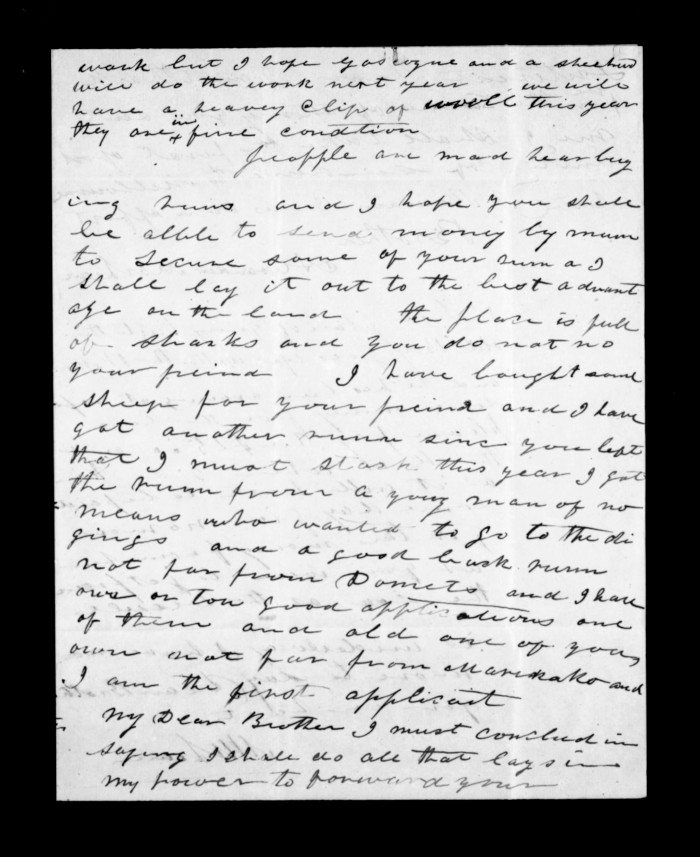 work but I hope Gascoyne and a sheeherd
will do the work next year we will
have a heavey Clip of wooll this year
they are in fine condtion
peapple are mad hear buy
ing runs and I hope you shall
be alble to send money by mum
to secure some of your runn a I
shall lay it out to the best advant
age on the land the place is full
of sharks and you do not no
your freind I have bought some
sheep for your freind and I have
got another runn sinc you left
that I must stock this year I got
the runn from a youg man of no
means who wanted to go to the di
gings and a good back runn
not far from Domets and I have
one or tou good applications one
of them and old one of yous
own not far from and
I am the first applicant
My Dear Brother I must conclud in
saying I shall do all that lays in
my power to forward your